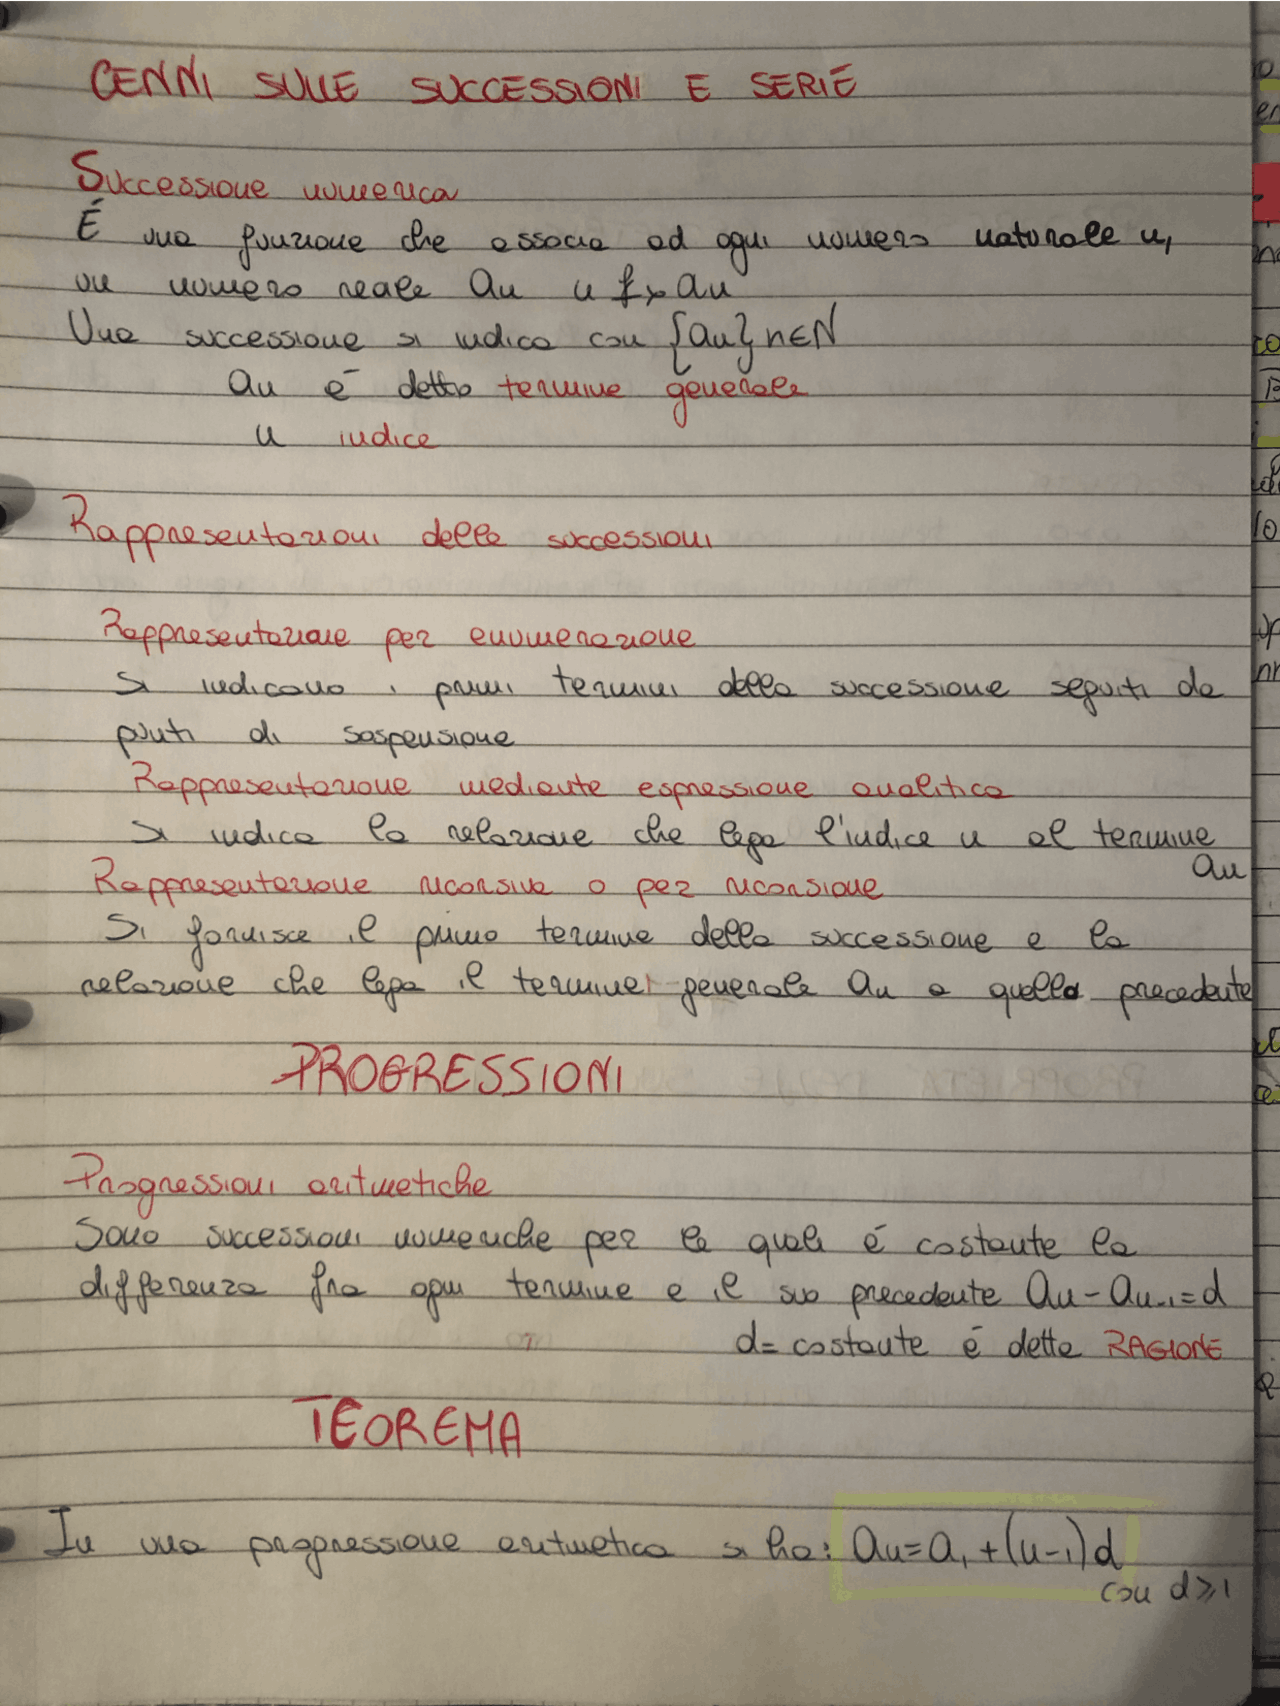 CENNI SULLE SUCCESSIONI E SERIE
Successione numerica
É una funzione che associa ad ogni numero naturale n,
un numero reale an n f→ an
Una successione si indica con {an} n∈N
an é detto termine generale
n indice
Rappresentazioni delle successioni
Rappresentazione per enumerazione
Si indicano i primi termini della successione seguiti da
punti di sospensione
Rappresentazione mediante espressione analitica
Si indica la relazione che lega l'indice n al termine
an
Rappresentazione ricorsiva o per ricorsione
Si fornisce il primo termine della successione e la
relazione che lega il termine generale an a quella precedente
PROGRESSIONI
Progressioni aritmetiche
Sono successioni numeriche per le quali é costante la
differenza fra ogni termine e il suo precedente an - an-1 = d
d = costante é detta RAGIONE
TEOREMA
In una progressione aritmetica si ha: an = a1 + (n-1)d
con d ≥ 1